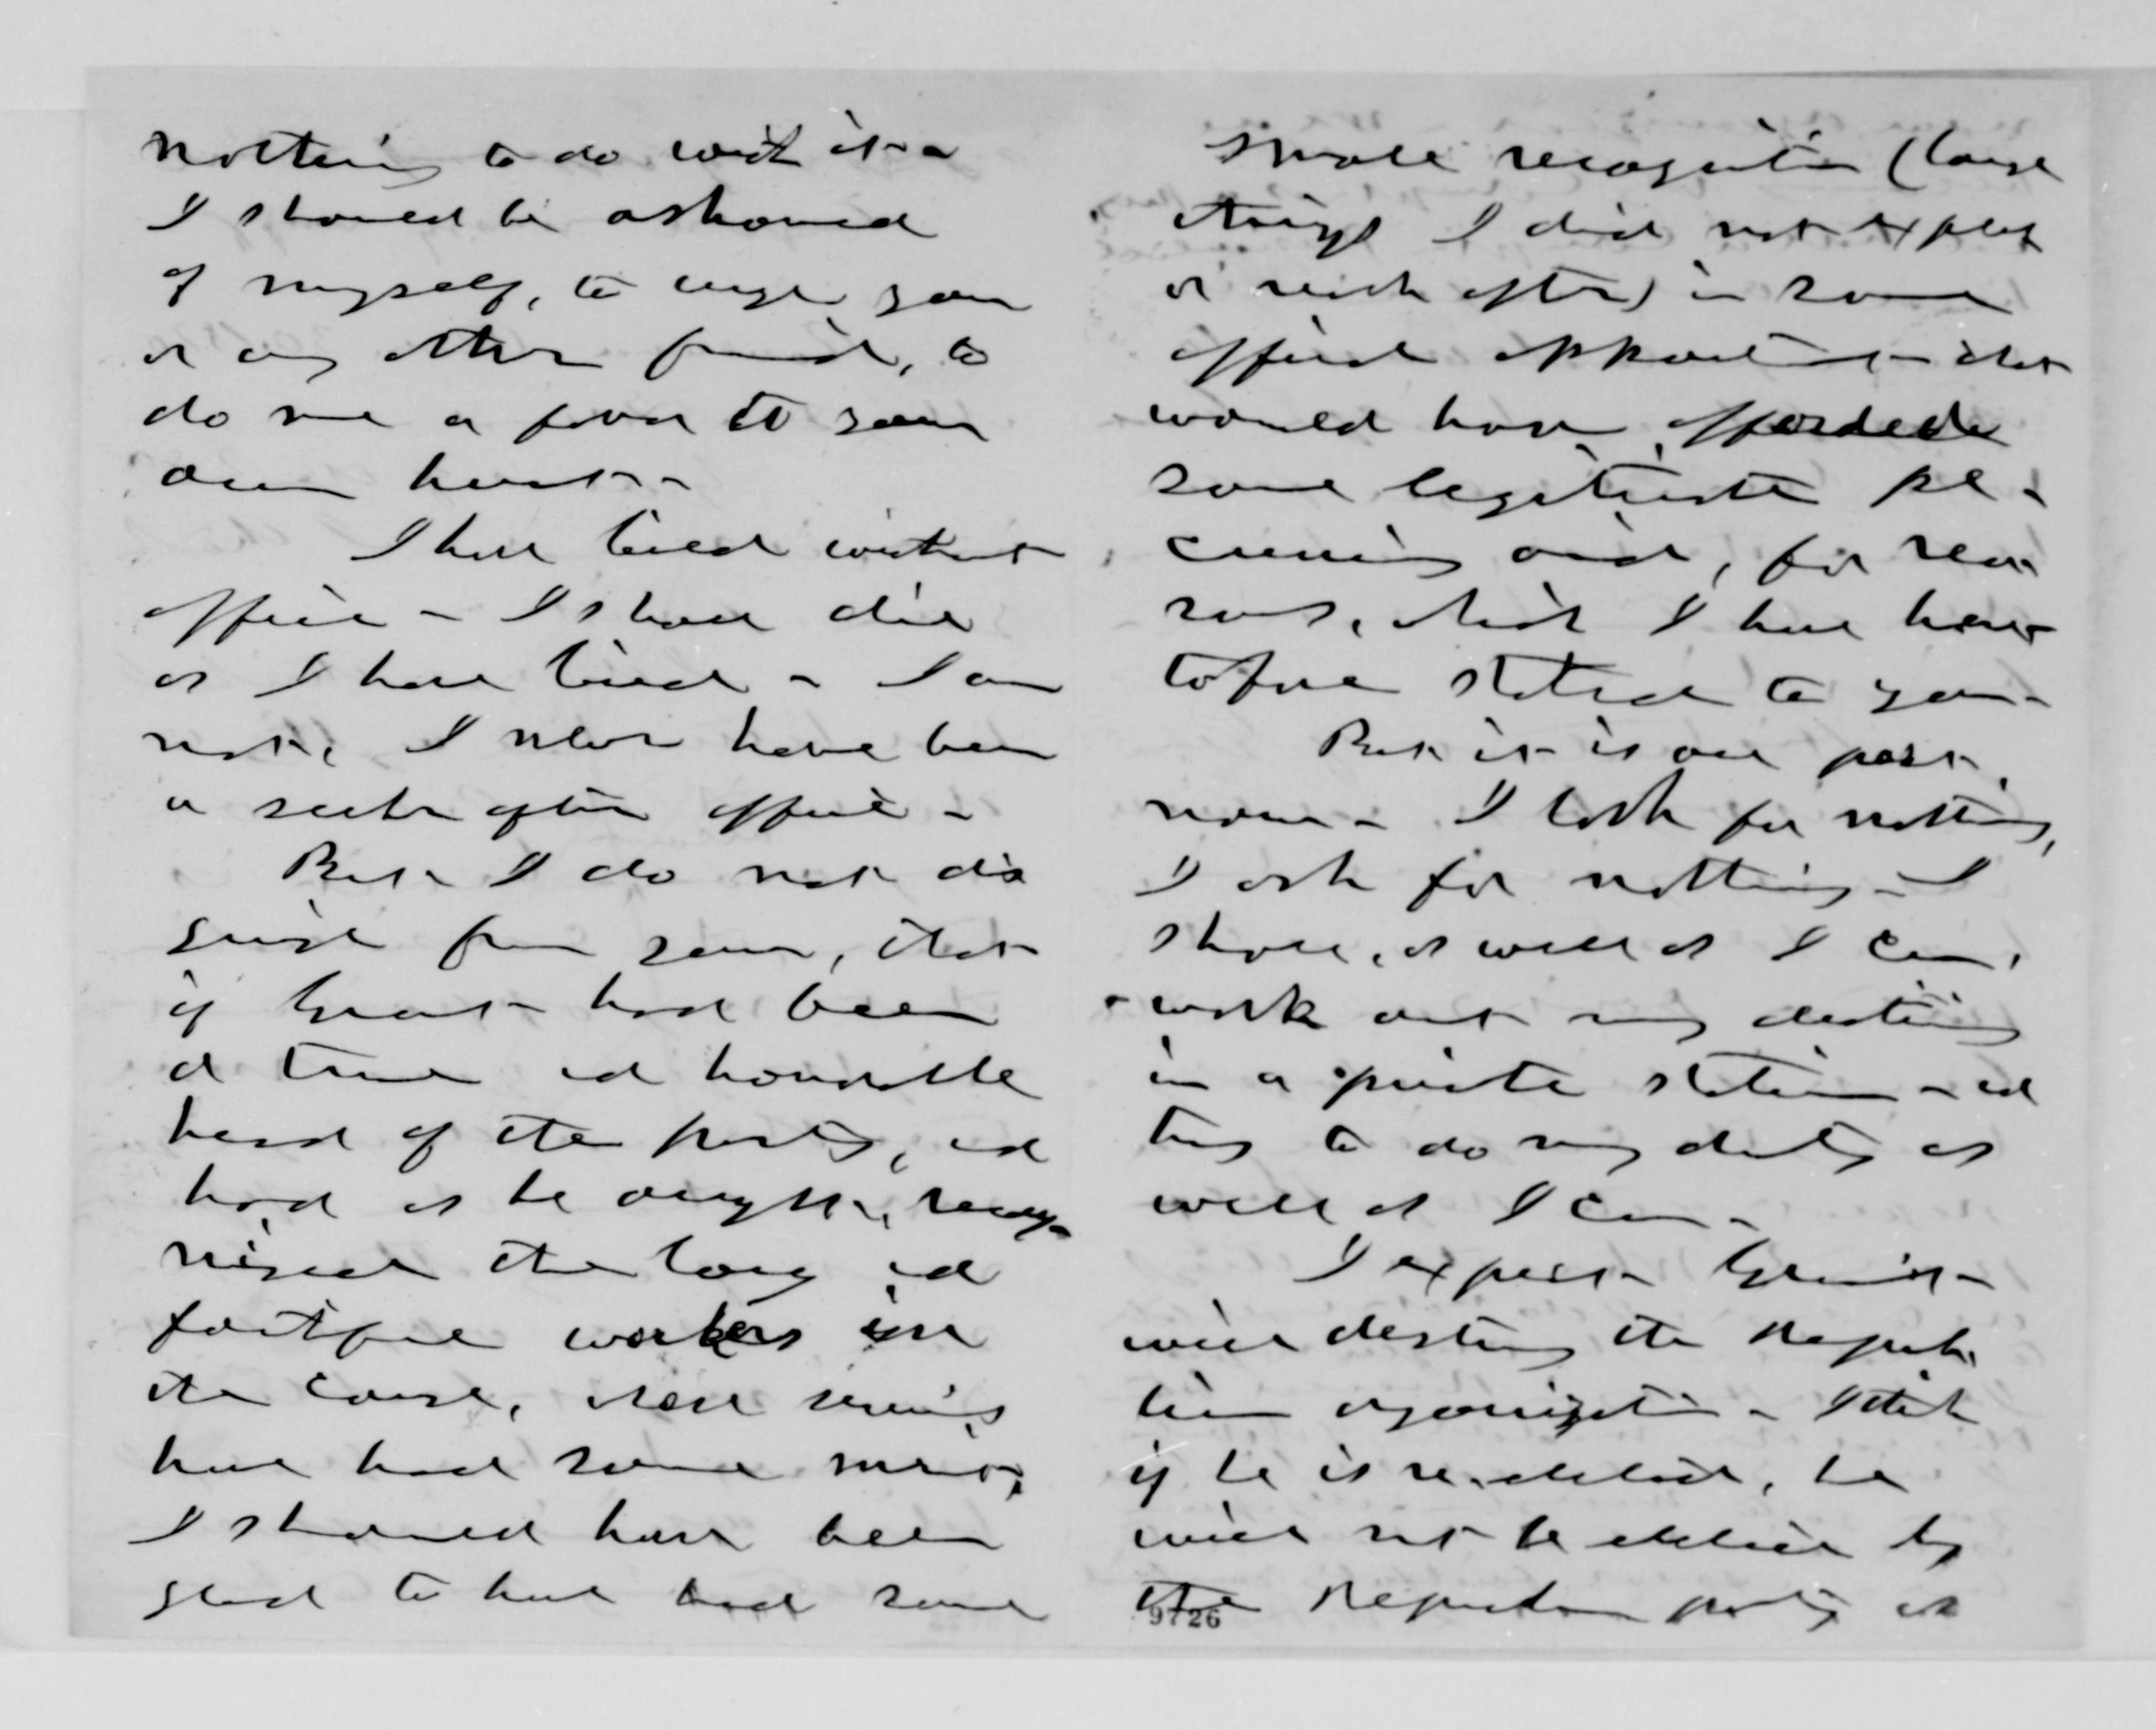 nothing to do with it -
I should be ashamed
of myself, to urge you
or any other friend, to
do me a favor to your
own hurt -
I have lived without
office - I shall die
as I have lived - I am
not, I never have been
a seeker after office -
But I do not dis
guise from you, that
if Grant had been
a true and honorable
head of the party, and
had as he ought, recog-
nised the long and
faithful workers in
the cause, whose services
have had some merit,
I should have been
glad to have had some
small recognition (large
things I did not expect
or wish after) in some
official appointment that
would have afforded
some legitimate pe-
cuniary aid, for rea-
sons, which I have here-
tofore stated to you -
But it is all past,
now - I look for nothing,
I ask for nothing - I
shall, as well as I can,
work out my destiny
in a private station - and
try to do my duty as
well as I can -
I expect Grant
will destroy the Repub-
lican organization - I think
if he is re-elected, he
will not be elected by
the Republican party as
9726